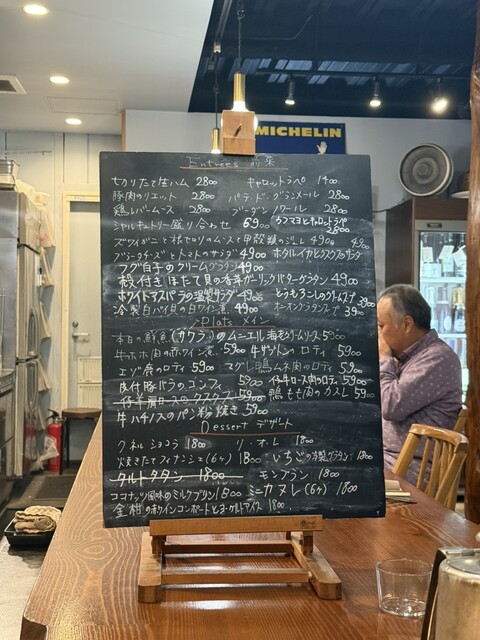 MICHELIN
Entrées 前菜
切りたて生ハム 2800 キャロットラペ 1400
豚肉のリエット 2800 パテ・ド・グランメール 2800
鶏レバームース 2800 ブーダンノワール 2800
シャルキュトリー盛り合わせ 6900 ウフマヨとキャロットラペ 2800
ズワイガニと根セロリのムースと甲殻類のジュレ 4900
ブラータチーズとトマトのサラダ 4900 ホタルイカとクスクスのサラダ 4900
フグ白子のクリームグラタン 4900
殻付きほたて貝の香草ガーリックバターグラタン 4900
ホワイトアスパラの温製サラダ 4900 とうもろこしのクレームブリュレ 3900
冷製白バイ貝の白ワイン煮 4900 オニオングラタンスープ 3900
Plats メイン
本日の鮮魚(サワラ)のムニエル海老クリームソース 5900
牛ホホ肉の赤ワイン煮 5900 牛サガリのロティ 5900
エゾ鹿のロティ 5900 マグレ鴨ムネ肉のロティ 5900
皮付豚バラのコンフィ 5900 仔牛ロース肉のロティ 5900
仔羊肩ロースのクスクス 5900 鴨もも肉のカスレ 5900
牛ハチノスのパン粉焼き 5900
Dessert デザート
クネルショコラ 1800 リ・オ・レ 1800
焼きたてフィナンシェ(6ヶ) 1800 いちごの冷製グラタン 1800
タルトタタン 1800 モンブラン 1800
ココナッツ風味のミルクプリン 1800 ミニカヌレ(6ヶ) 1800
金柑の赤ワインコンポートとヨーグルトアイス 1800